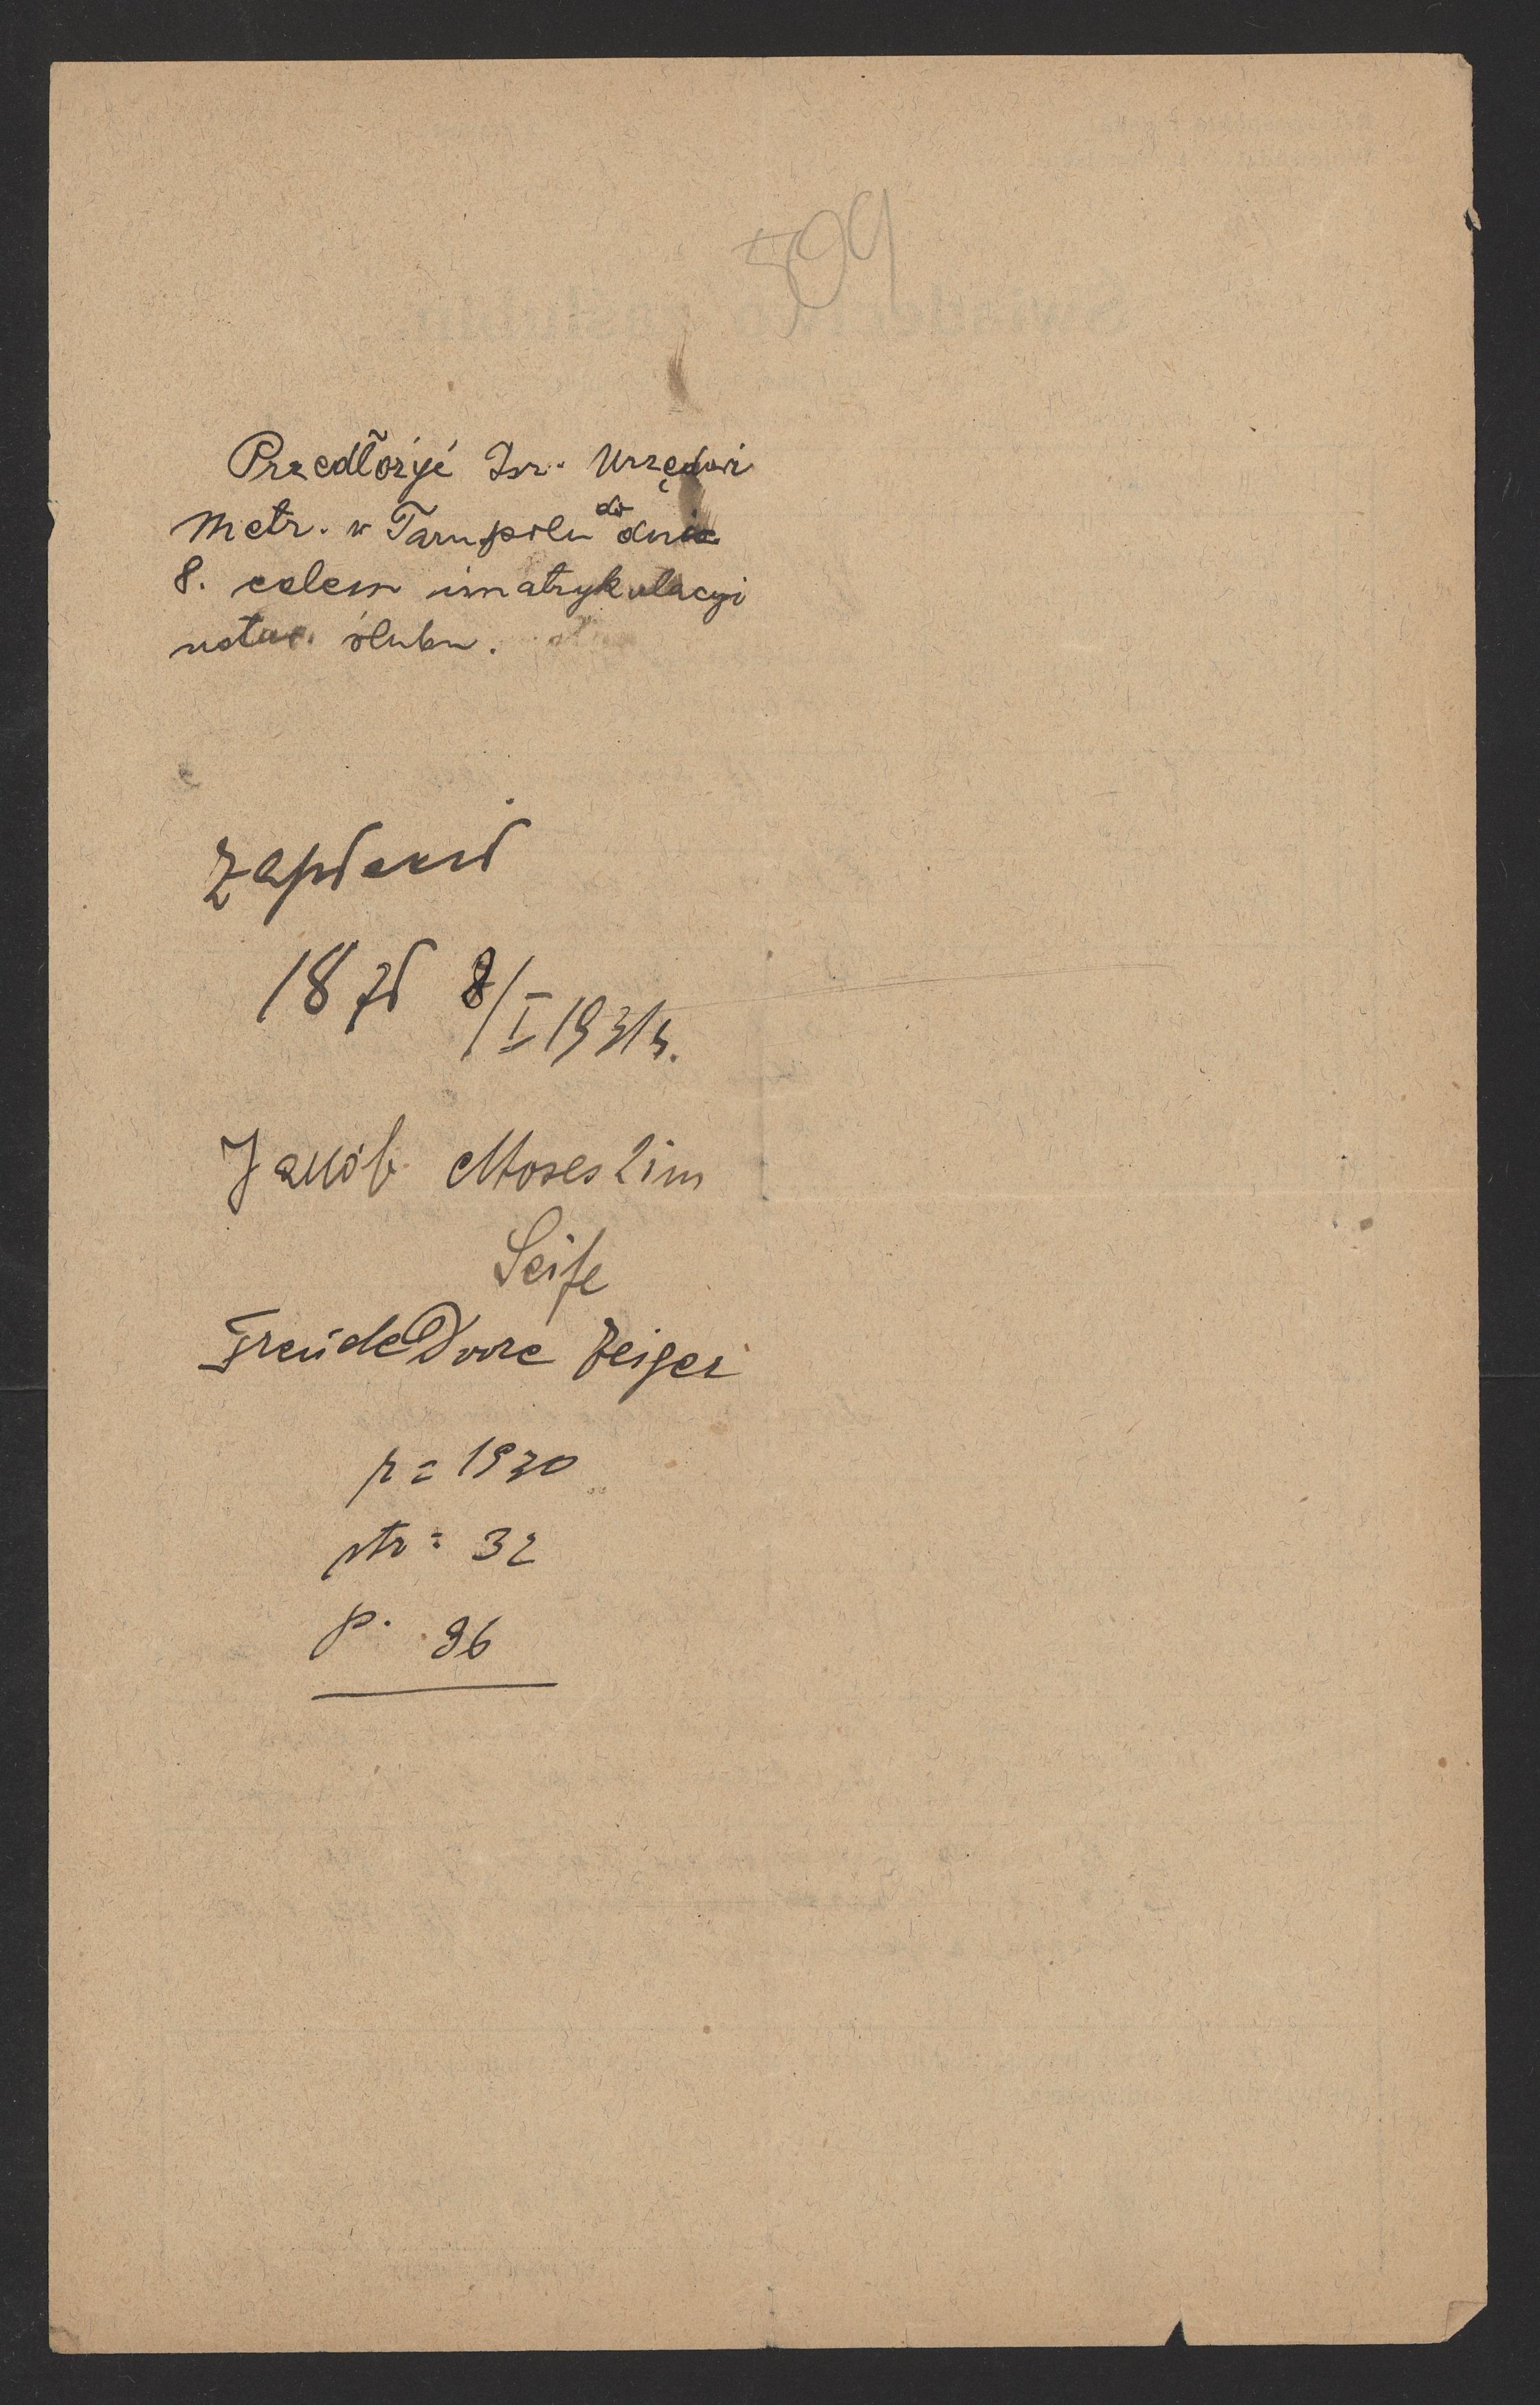 599
Przedłożyć Izr. Urzędowi
Metr. w Tarnopolu do dnia
8. celem imatrykulacyi
ślubu.
Zapłacił
18 zł 8/I 1931 r.
Jakób Moses 2 im
Seife
Freude Dwore Zeiger
r = 1930
str = 32
p. 96